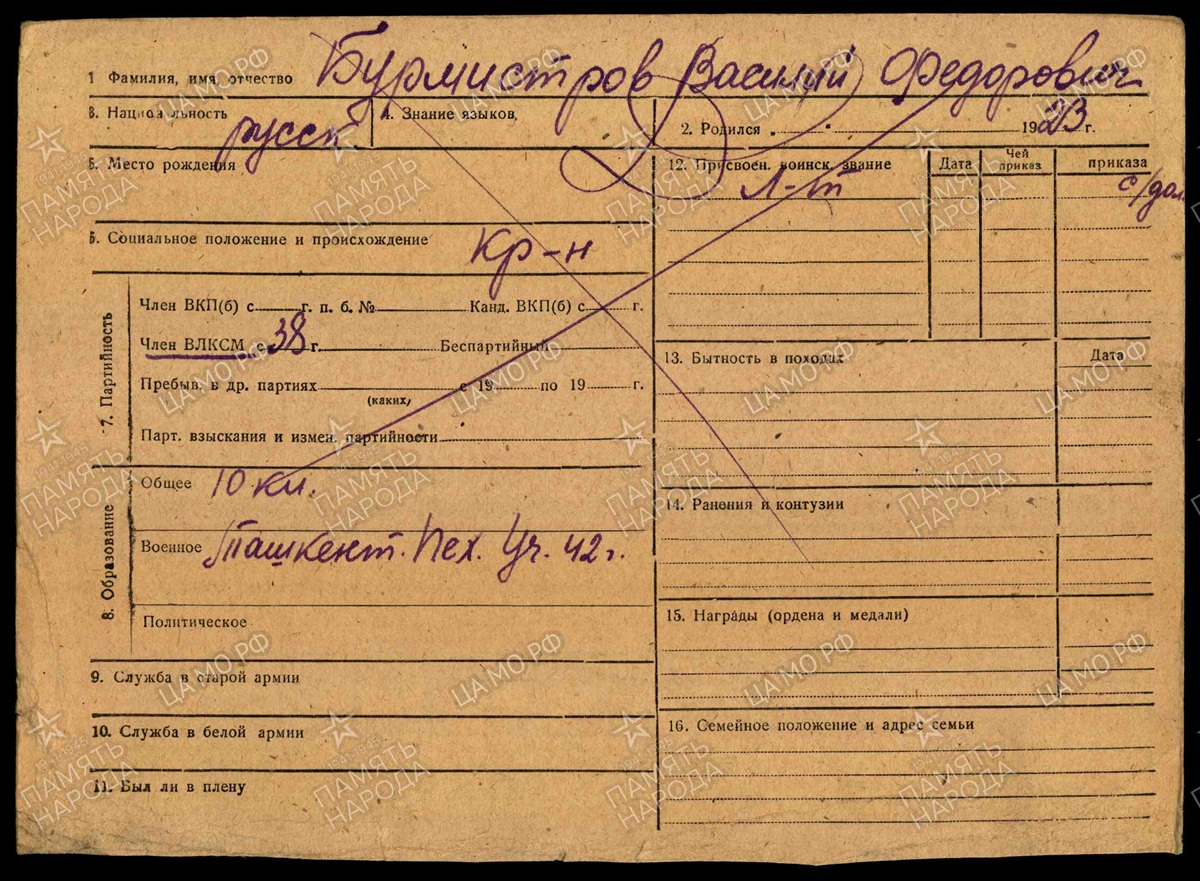 1 Фамилия, имя, отчество Бурмистров Василий Федорович
3. Национальность русск. 4. Знание языков,
2. Родился 1923 г.
5. Место рождения
12. Присвоен. воинск. звание Дата Чей приказ приказа
Л-т с/дол
6. Социальное положение и происхождение Кр-н
7. Партийность
Член ВКП(б) с г. п. б. № Канд. ВКП(б) с г.
Член ВЛКСМ с 38 г. Беспартийный
Пребыв. в др. партиях с 19 по 19 г.
(каких)
Парт. взыскания и измен. партийности
13. Бытность в походах Дата
8. Образование
Общее 10 кл.
14. Ранения и контузии
Военное Ташкент. Пех. Уч. 42 г.
Политическое
15. Награды (ордена и медали)
9. Служба в старой армии
10. Служба в белой армии
16. Семейное положение и адрес семьи
11. Был ли в плену
ЦАМО.РФ
1941-1945
ПАМЯТЬ
НАРОДА